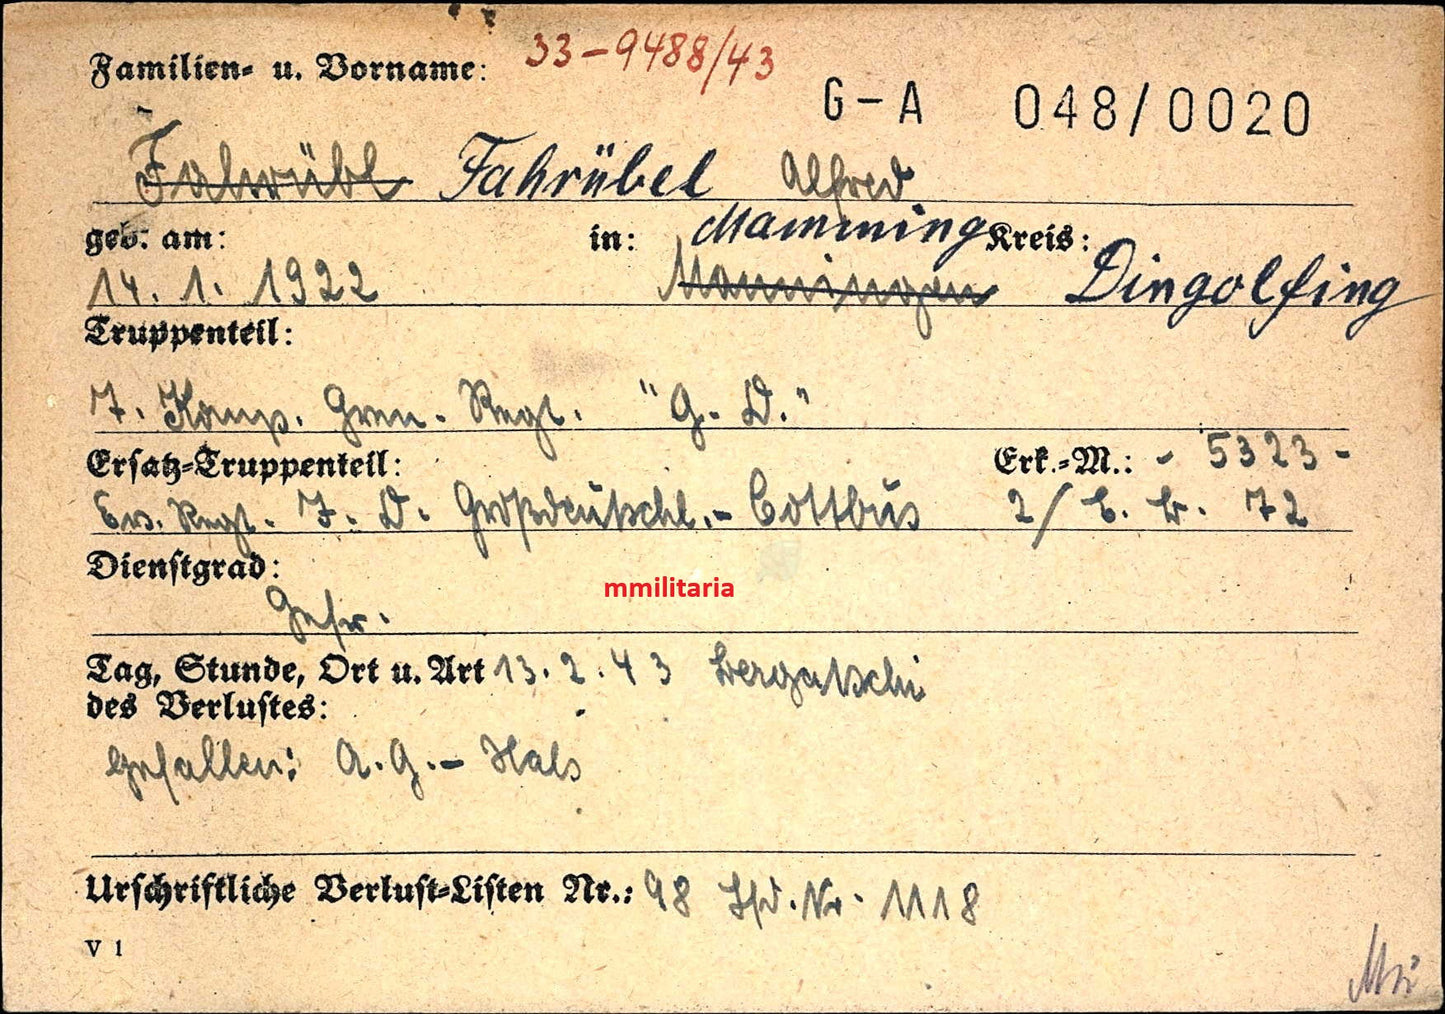 33-9488/43
Familien- u. Vorname:
G-A 048/0020
Fahrübl Fahrübel Alfred
geb. am: in: Mamming Kreis:
14. 1. 1922 Manningen Dingolfing
Truppenteil:
7. Komp. Gren. Regt. "G. D."
Ersatz-Truppenteil: Erk.-M.: - 5323 -
Ers. Regt. I. D. Großdeutschl. - Cottbus 2/ E. B. 72
Dienstgrad:
mmilitaria
Gefr.
Tag, Stunde, Ort u. Art 13. 2. 43
des Verlustes:
gefallen: A. G. - Hals
Urschriftliche Verlust-Listen Nr.: 98 Lfd. Nr. 1118
V 1